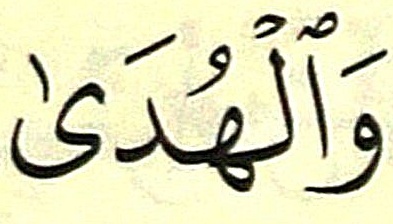 وَٱلۡهُدَىٰ